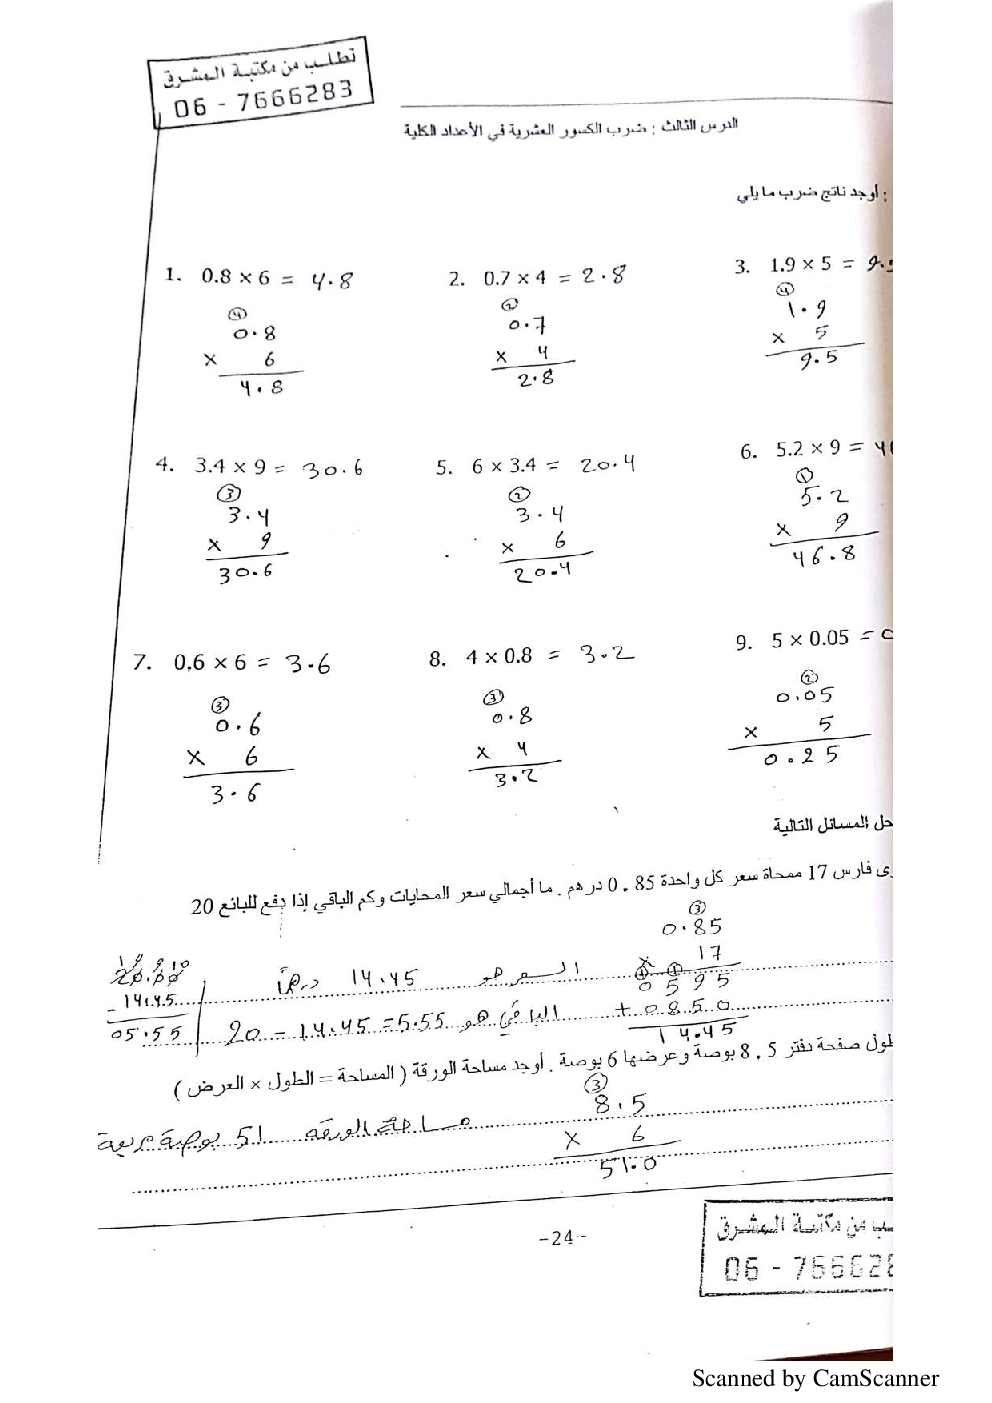 تطلب من مكتبة المشرق
06 - 7666283
الدرس الثالث : ضرب الكسور العشرية في الأعداد الكلية
: أوجد ناتج ضرب مايلي
1. 0.8 × 6 = 4.8
0.8
× 6
4.8
2. 0.7 × 4 = 2.8
2
0.7
× 4
2.8
3. 1.9 × 5 = 9.5
4
1.9
× 5
9.5
4. 3.4 × 9 = 30.6
3
3.4
× 9
30.6
5. 6 × 3.4 = 20.4
2
3.4
× 6
20.4
6. 5.2 × 9 = 4
1
5.2
× 9
46.8
7. 0.6 × 6 = 3.6
3
0.6
× 6
3.6
8. 4 × 0.8 = 3.2
3
0.8
× 4
3.2
9. 5 × 0.05 = 0
2
0.05
× 5
0.25
حل المسائل التالية
ى فارس 17 ممحاة سعر كل واحدة 0.85 درهم . ما أجمالي سعر المحايات وكم الباقي إذا دفع للبائع 20
3
0.85
× 17
0595
+ 0850
14.45
السعر هو 14.45 درهماً
الباقي هو 20 - 14.45 = 5.55
20.00
- 14.45
05.55
طول صفحة دفتر 8.5 بوصة وعرضها 6 بوصة . أوجد مساحة الورقة ( المساحة = الطول × العرض )
3
8.5
× 6
51.0
مساحة الورقة 51 بوصة مربعة
-24-
ب من مكتبة المشرق
06 - 766628
Scanned by CamScanner